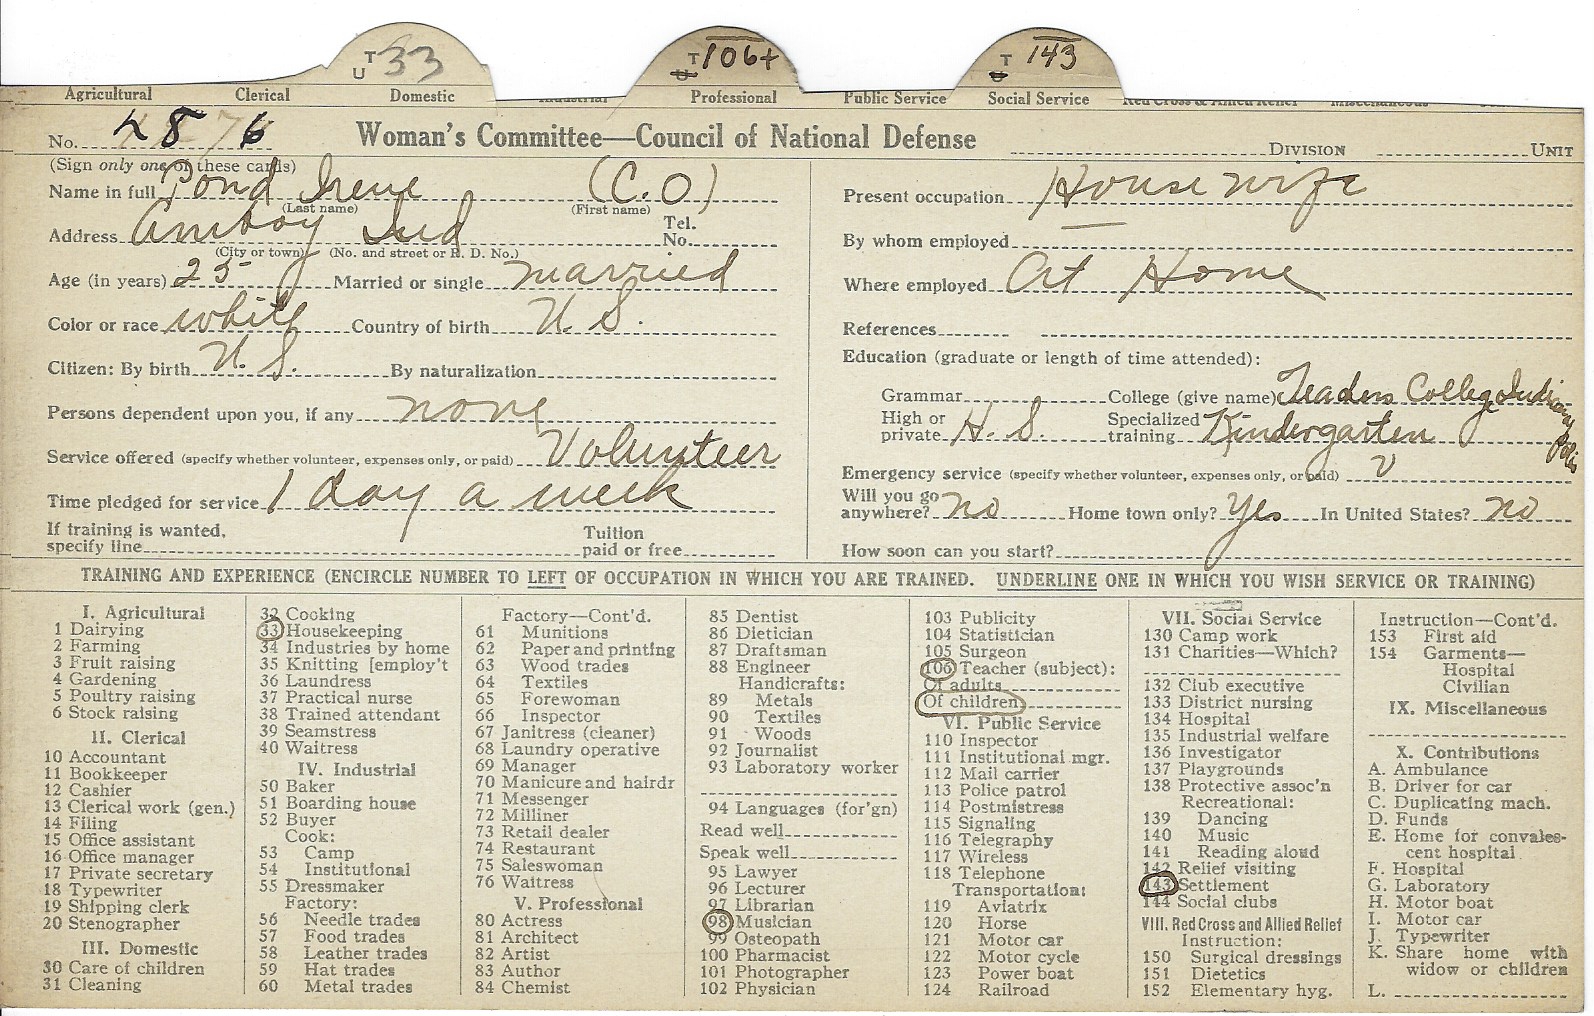 T U 33
T U 106+
T U 143
Agricultural Clerical Domestic Industrial Professional Public Service Social Service Red Cross & Allied Relief Miscellaneous
No. 2876
Woman's Committee—Council of National Defense
DIVISION UNIT
(Sign only one of these cards)
Name in full Pond Irene (C.O)
(Last name) (First name)
Address Amboy Ind Tel. No.
(City or town) (No. and street or R. D. No.)
Age (in years) 25 Married or single married
Color or race white Country of birth U. S.
Citizen: By birth U. S. By naturalization
Persons dependent upon you, if any none
Service offered (specify whether volunteer, expenses only, or paid) Volunteer
Time pledged for service 1 day a week
If training is wanted, specify line Tuition paid or free
Present occupation House wife
By whom employed —
Where employed At Home
References
Education (graduate or length of time attended):
Grammar College (give name) Teachers College Indianapolis
High or private H. S. Specialized training Kindergarten
Emergency service (specify whether volunteer, expenses only, or paid) V
Will you go anywhere? no Home town only? Yes In United States? no
How soon can you start?
TRAINING AND EXPERIENCE (ENCIRCLE NUMBER TO LEFT OF OCCUPATION IN WHICH YOU ARE TRAINED. UNDERLINE ONE IN WHICH YOU WISH SERVICE OR TRAINING)
I. Agricultural
1 Dairying
2 Farming
3 Fruit raising
4 Gardening
5 Poultry raising
6 Stock raising
II. Clerical
10 Accountant
11 Bookkeeper
12 Cashier
13 Clerical work (gen.)
14 Filing
15 Office assistant
16 Office manager
17 Private secretary
18 Typewriter
19 Shipping clerk
20 Stenographer
III. Domestic
30 Care of children
31 Cleaning
32 Cooking
33 Housekeeping
34 Industries by home
35 Knitting [employ't
36 Laundress
37 Practical nurse
38 Trained attendant
39 Seamstress
40 Waitress
IV. Industrial
50 Baker
51 Boarding house
52 Buyer
Cook:
53 Camp
54 Institutional
55 Dressmaker
Factory:
56 Needle trades
57 Food trades
58 Leather trades
59 Hat trades
60 Metal trades
Factory—Cont'd.
61 Munitions
62 Paper and printing
63 Wood trades
64 Textiles
65 Forewoman
66 Inspector
67 Janitress (cleaner)
68 Laundry operative
69 Manager
70 Manicure and hairdr
71 Messenger
72 Milliner
73 Retail dealer
74 Restaurant
75 Saleswoman
76 Waitress
V. Professional
80 Actress
81 Architect
82 Artist
83 Author
84 Chemist
85 Dentist
86 Dietician
87 Draftsman
88 Engineer
Handicrafts:
89 Metals
90 Textiles
91 Woods
92 Journalist
93 Laboratory worker
94 Languages (for'gn)
Read well
Speak well
95 Lawyer
96 Lecturer
97 Librarian
98 Musician
99 Osteopath
100 Pharmacist
101 Photographer
102 Physician
103 Publicity
104 Statistician
105 Surgeon
106 Teacher (subject):
Of adults
Of children
VI. Public Service
110 Inspector
111 Institutional mgr.
112 Mail carrier
113 Police patrol
114 Postmistress
115 Signaling
116 Telegraphy
117 Wireless
118 Telephone
Transportation:
119 Aviatrix
120 Horse
121 Motor car
122 Motor cycle
123 Power boat
124 Railroad
VII. Social Service
130 Camp work
131 Charities—Which?
132 Club executive
133 District nursing
134 Hospital
135 Industrial welfare
136 Investigator
137 Playgrounds
138 Protective assoc'n
Recreational:
139 Dancing
140 Music
141 Reading aloud
142 Relief visiting
143 Settlement
144 Social clubs
VIII. Red Cross and Allied Relief
Instruction:
150 Surgical dressings
151 Dietetics
152 Elementary hyg.
Instruction—Cont'd.
153 First aid
154 Garments—
Hospital
Civilian
IX. Miscellaneous
X. Contributions
A. Ambulance
B. Driver for car
C. Duplicating mach.
D. Funds
E. Home for convales-
cent hospital
F. Hospital
G. Laboratory
H. Motor boat
I. Motor car
J. Typewriter
K. Share home with
widow or children
L.